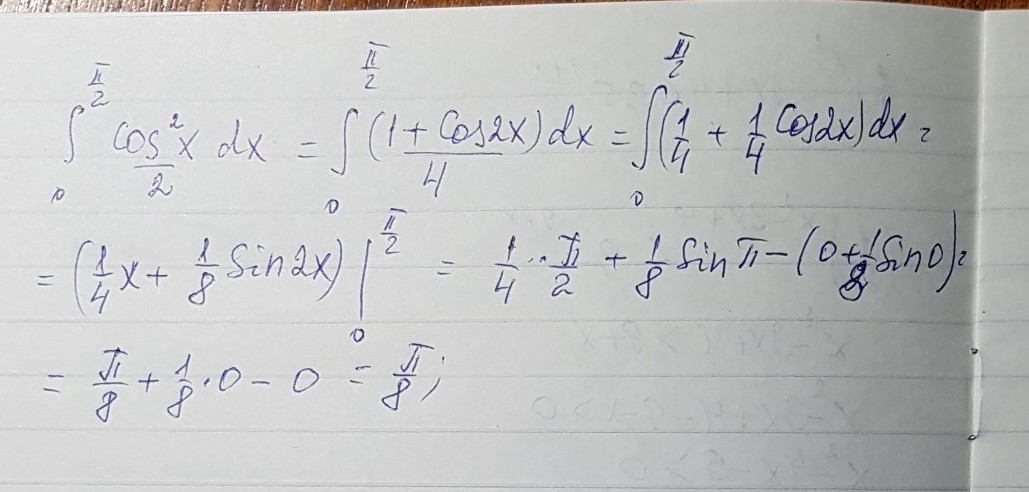 ∫₀^(π/2) cos²x/2 dx = ∫₀^(π/2) (1 + cos2x)/4 dx = ∫₀^(π/2) (1/4 + 1/4 cos2x) dx =
= (1/4 x + 1/8 sin2x) |₀^(π/2) = 1/4 · π/2 + 1/8 sin π − (0 + 1/8 sin0) =
= π/8 + 1/8 · 0 − 0 = π/8;